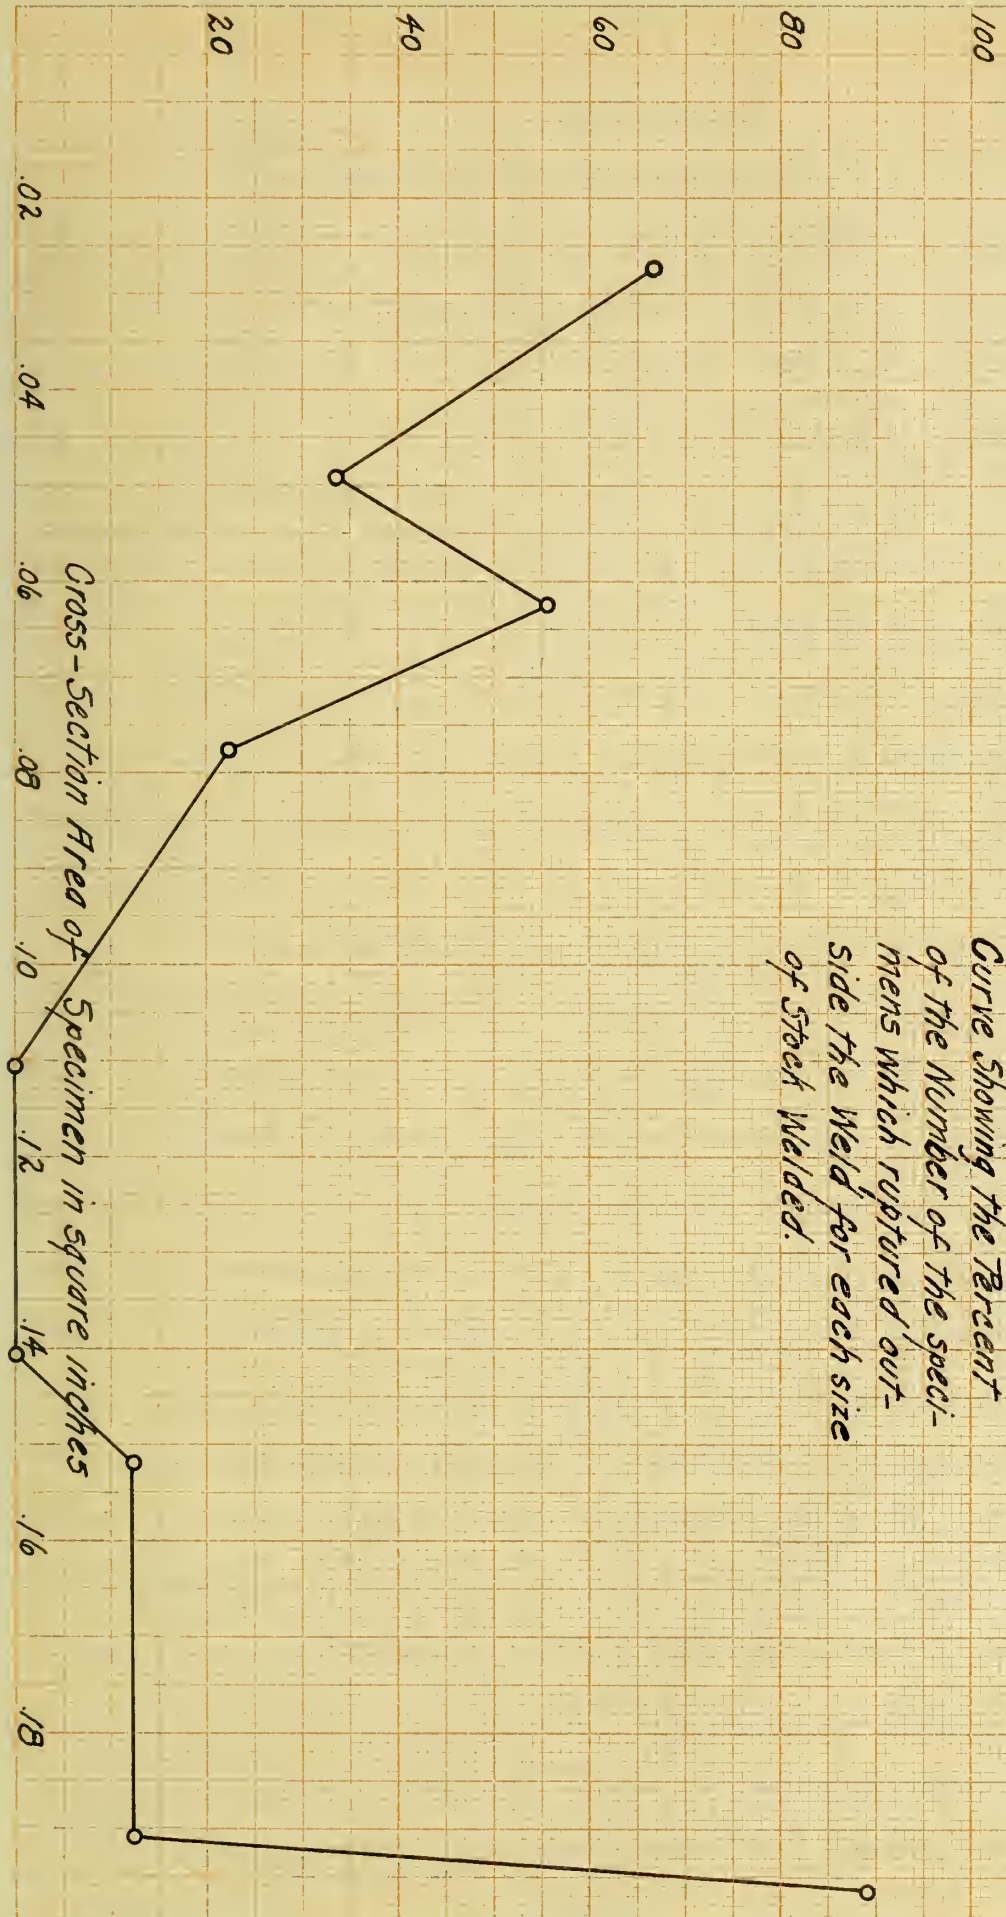 Curve Showing the Percent
of the Number of the speci-
mens which ruptured out-
side the Weld for each size
of Stock Welded.
100
80
60
40
20
.02 .04 .06 .08 .10 .12 .14 .16 .18
Cross-Section Area of Specimen in square inches